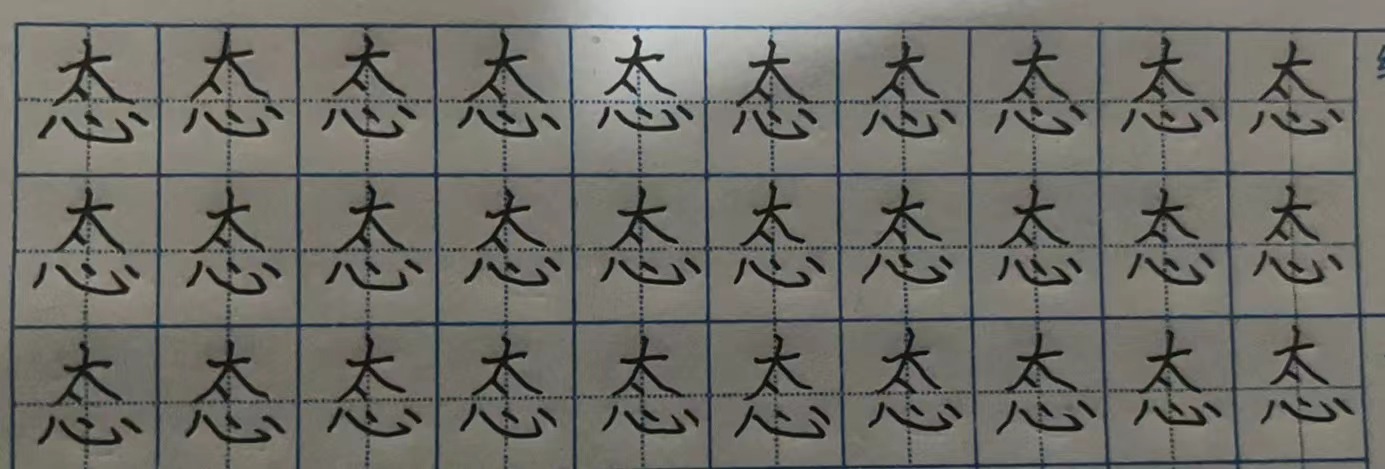 态态态态态态态态态态
态态态态态态态态态态
态态态态态态态态态态